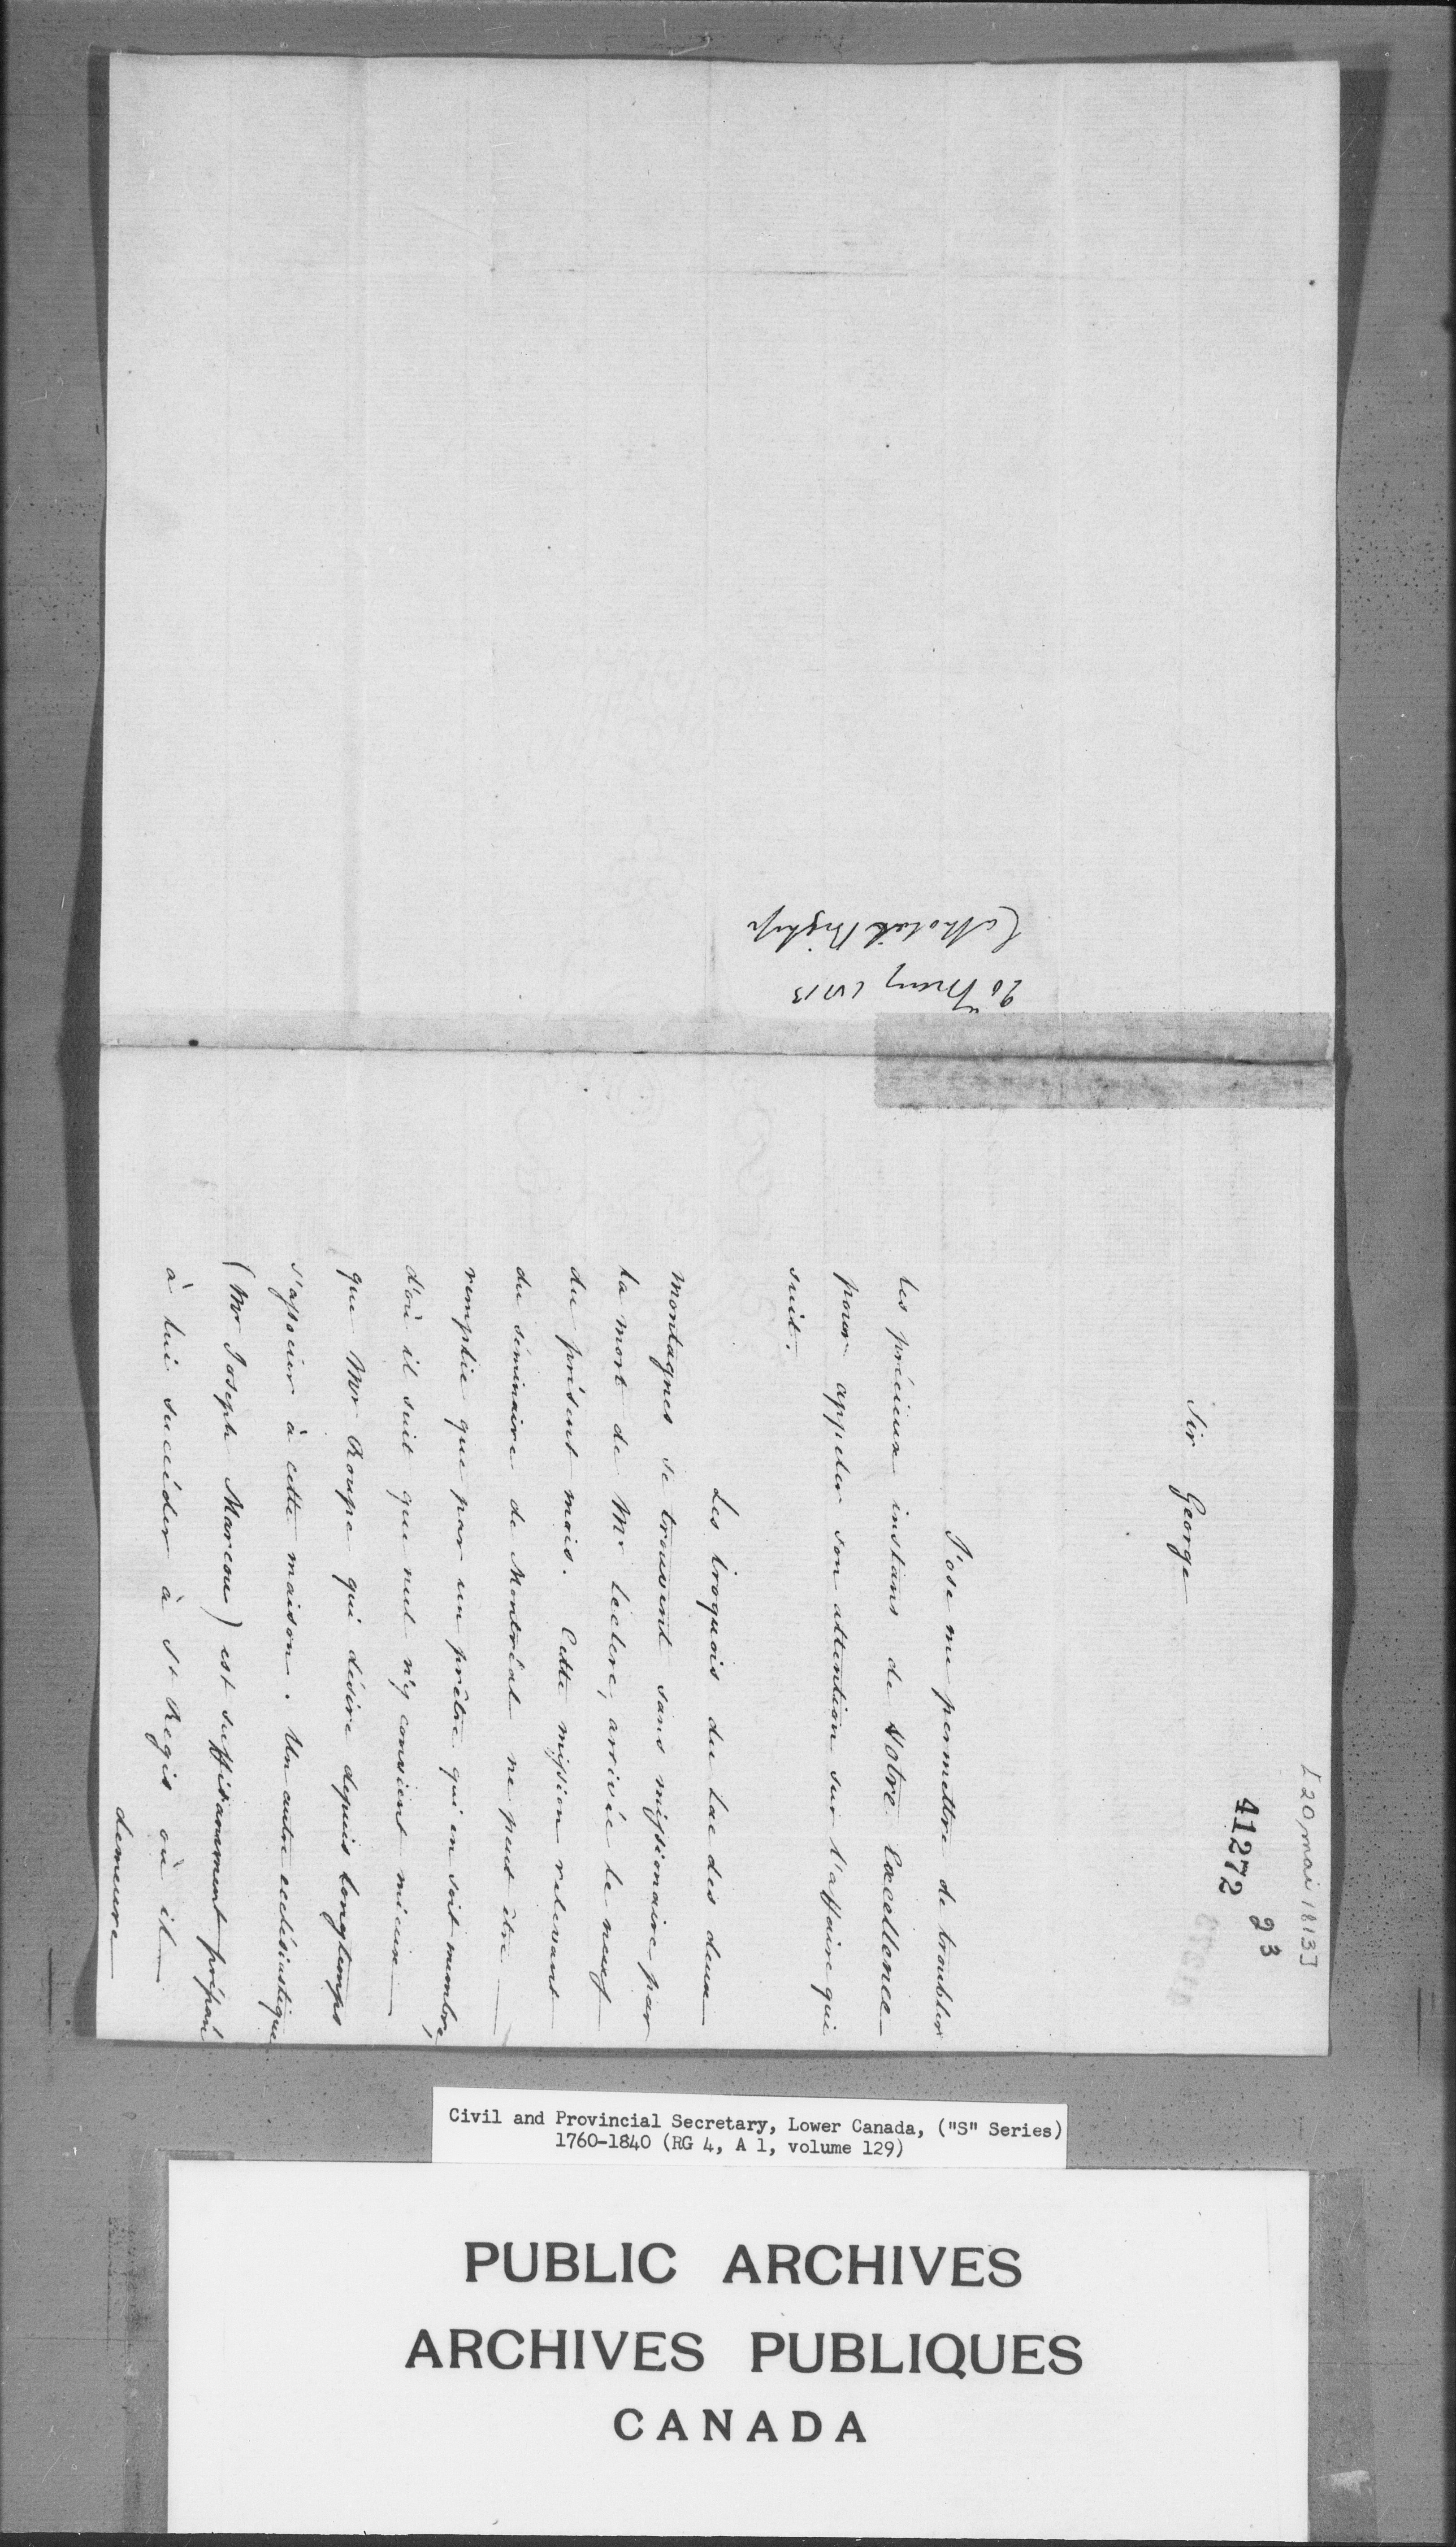 [20, mai 1813]
41272
23
Sir George
J'ose me permettre de troubler
les précieux instans de Votre Excellence
pour appeler son attention sur l'affaire qui
suit.
Les iroquois du Lac des deux
montagnes se trouvent sans missionaire par
la mort de Mr. Leclerc, arrivée le neuf
du présent mois. Cette mission relevant
du séminaire de Montréal ne peut être
remplie que par un prêtre qui en soit membre,
d'où il suit que nul n'y convient mieux
que Mr Roupe qui désire depuis longtemps
s'associer à cette maison. Un autre ecclésiastique
(Mr Joseph Marcou) est suffisamment préparé
à lui succéder à St Regis où il
demeure
20th May 1813
Catholick Bishop
Civil and Provincial Secretary, Lower Canada, ("S" Series)
1760-1840 (RG 4, A 1, volume 129)
PUBLIC ARCHIVES
ARCHIVES PUBLIQUES
CANADA